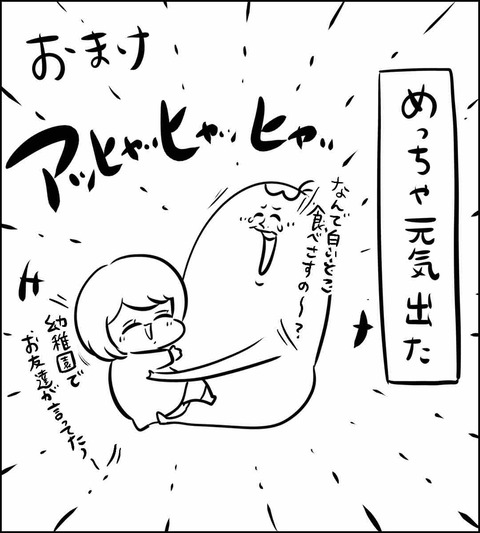 おまけ
めっちゃ元気出た
アッヒャッヒャッヒャッ
なんで白いとこ
食べさすの〜？
幼稚園で
お友達が言ってたぅ〜